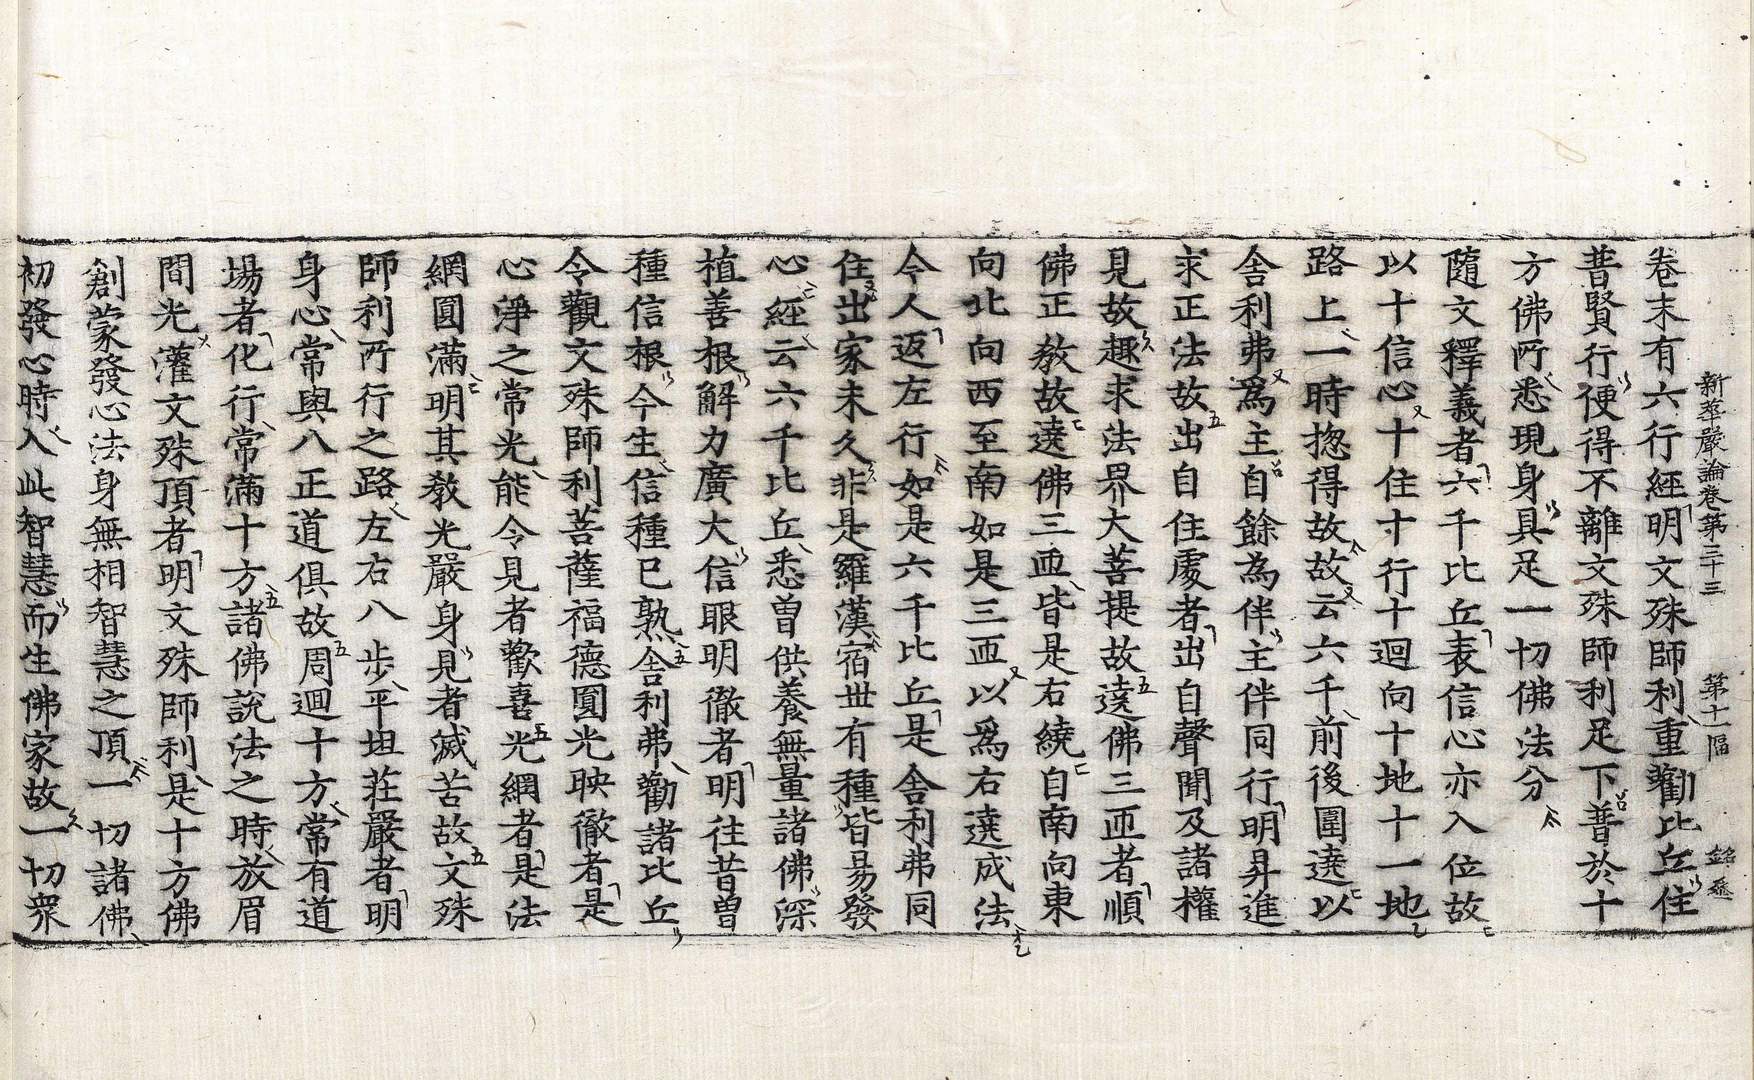 新華嚴論卷第三十三 第十一幅
卷末有六行經明文殊師利重勸比丘住
普賢行便得不離文殊師利足下普於十
方佛所悉現身具足一切佛法分
隨文釋義者六千比丘表信心亦入位故
以十信心十住十行十迴向十地十一地
路上一時揔得故故云六千前後圍遶以
舍利弗爲主自餘為伴主伴同行明昇進
求正法故出自住處者出自聲聞及諸權
見故趣求法界大菩提故遶佛三匝者順
佛正教故遶佛三匝皆是右繞自南向東
向北向西至南如是三匝以爲右遶成法
今人返左行如是六千比丘是舍利弗同
住出家未久非是羅漢宿世有種皆易發
心經云六千比丘悉曾供養無量諸佛深
植善根解力廣大信眼明徹者明往昔曾
種信根今生信種已熟舍利弗勸諸比丘
令觀文殊師利菩薩福德圓光映徹者是
心淨之常光能令見者歡喜光網者是法
網圓滿明其教光嚴身見者滅苦故文殊
師利所行之路左右八步平坦莊嚴者明
身心常與八正道俱故周迴十方常有道
場者化行常滿十方諸佛說法之時放眉
間光灌文殊頂者明文殊師利是十方佛
創蒙發心法身無相智慧之頂一切諸佛
初發心時入此智慧而生佛家故一切衆